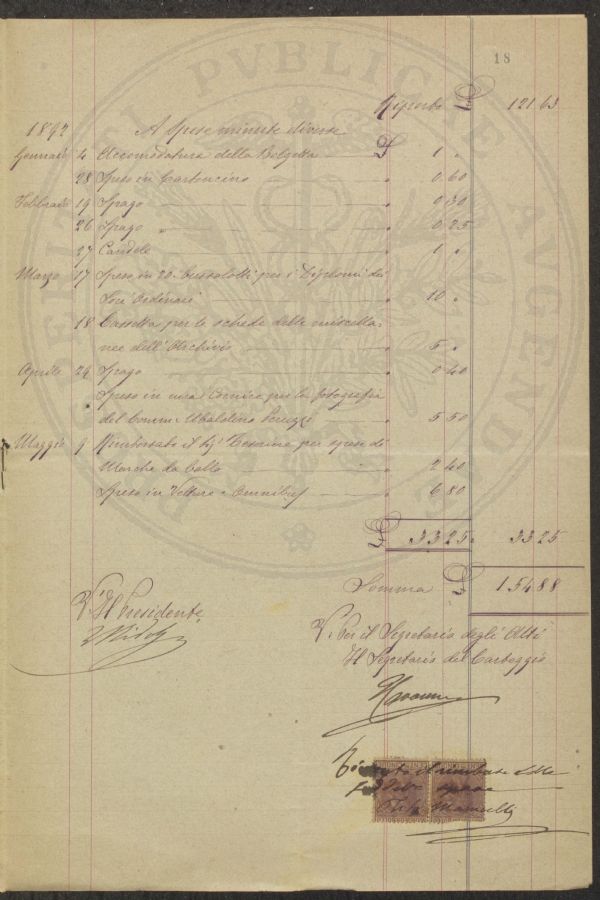 18
Riporto £ 121 63
1892 A Spese minute diverse
Gennaio 4 Accomodatura della Bolgetta £ 1 „
28 Speso in Cartoncino „ 0,60
Febbraio 19 Spago „ 0,30
26 Spago „ „ 0,25
27 Candele „ 1 „
Marzo 17 Speso in 20 bussolotti per i Diplomi dei
Soci Ordinari „ 10 „
18 Cassetta per le schede delle miscella
nee dell'Archivio „ 5 „
Aprile 24 Spago „ 0 40
Speso in una Cornice per la fotografia
del Comm. Ubaldino Peruzzi „ 5 50
Maggio 9 Rimborsato il Sig. Tesoriere per spese di
Marche da bollo „ 2 40
Speso in Vetture e Omnibus „ 6 80
£ 33 25 33 25
Somma £ 154 88
V. Il Presidente
V. Per il Segretario degli Atti
Il Segretario del Carteggio
il rimborso delle
spese